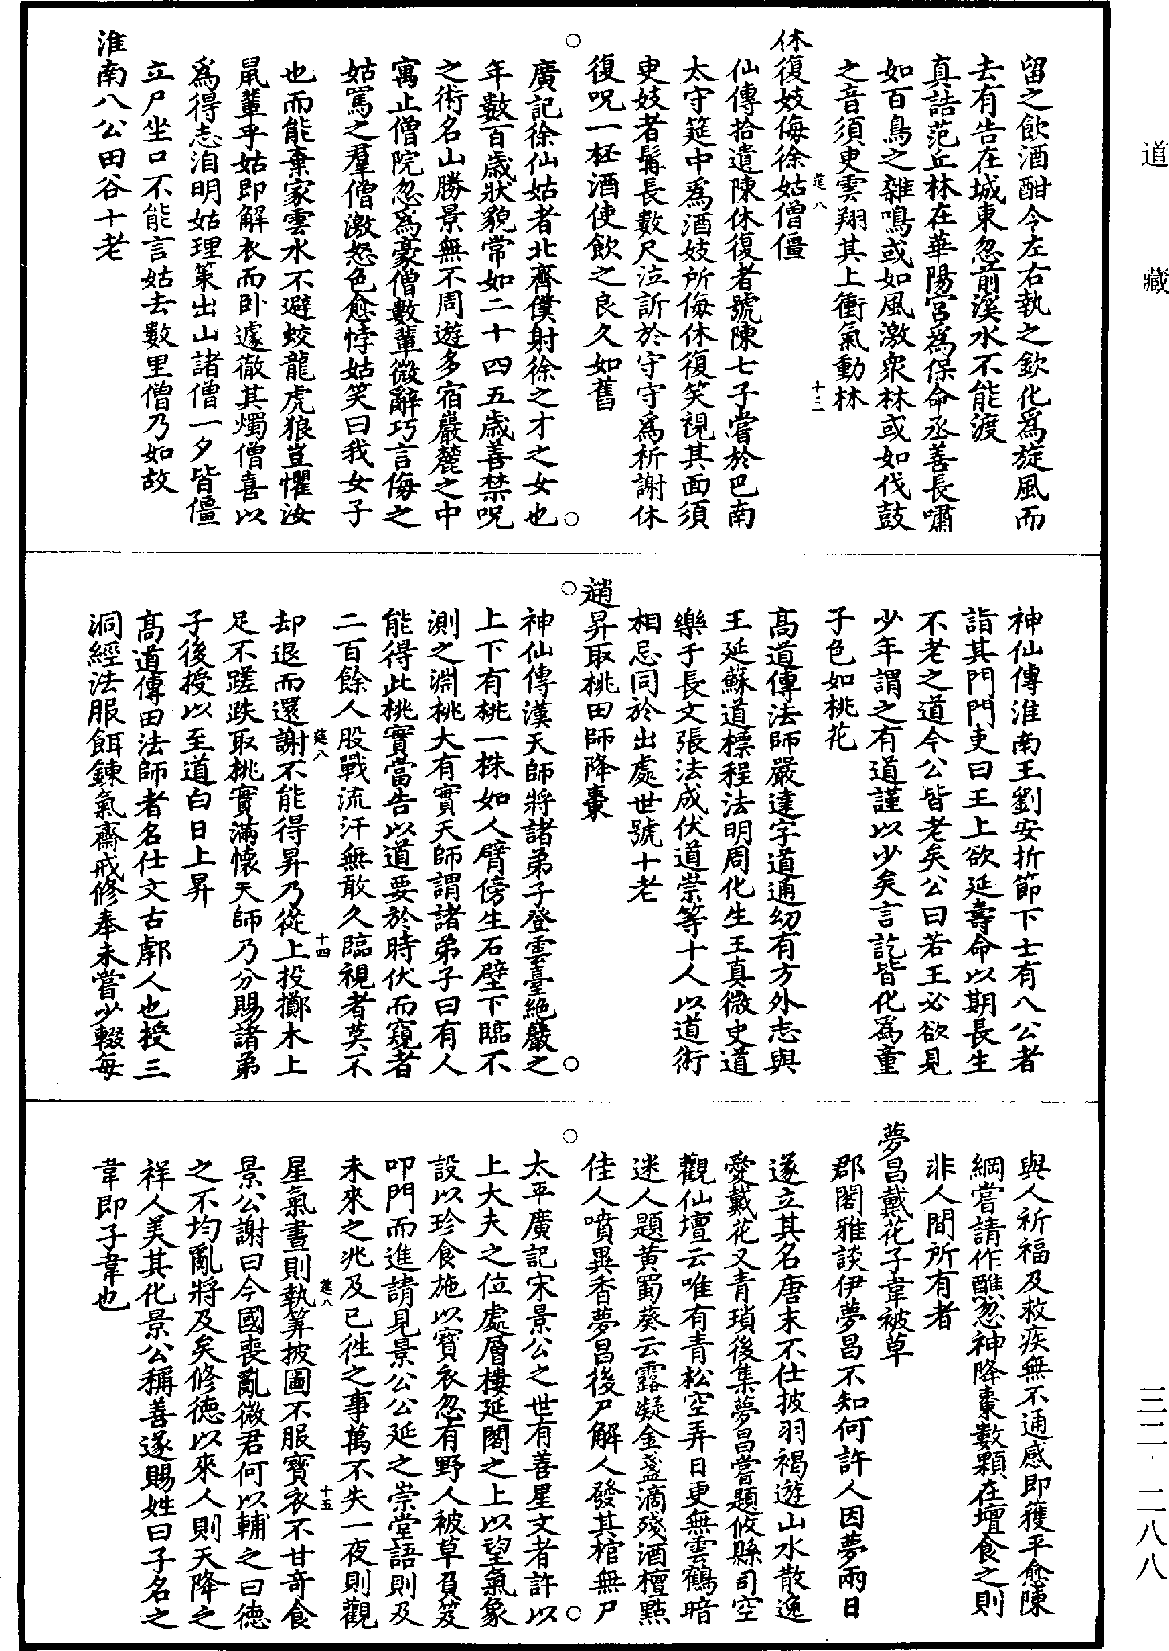 道藏
留之飲酒酣令左右執之欽化爲旋風而
去有告在城東忽前溪水不能渡
真誥范丘林在華陽宮爲保命丞善長嘯
如百鳥之雜鳴或如風激衆林或如伐鼓
之音須臾雲翔其上衝氣動林
筵八
十三
休復妓侮徐姑僧僵
仙傳拾遺陳休復者號陳七子嘗於巴南
太守筵中爲酒妓所侮休復笑視其面須
臾妓者髯長數尺泣訴於守守爲祈謝休
復呪一杯酒使飲之良久如舊
廣記徐仙姑者北齊僕射徐之才之女也
年數百歲狀貌常如二十四五歲善禁呪
之術名山勝景無不周遊多宿巖麓之中
寓止僧院忽爲豪僧數輩微辭巧言侮之
姑罵之羣僧激怒色愈悖姑笑曰我女子
也而能棄家雲水不避蛟龍虎狼豈懼汝
鼠輩乎姑即解衣而卧遽徹其燭僧喜以
爲得志洎明姑理策出山諸僧一夕皆僵
立尸坐口不能言姑去數里僧乃如故
淮南八公田谷十老
神仙傳淮南王劉安折節下士有八公者
詣其門門吏曰王上欲延壽命以期長生
不老之道今公皆老矣公曰若王必欲見
少年謂之有道謹以少矣言訖皆化爲童
子色如桃花
高道傳法師嚴達字道通幼有方外志與
王延蘇道標程法明周化生王真微史道
樂于長文張法成伏道崇等十人以道術
相忌同於出處世號十老
趙昇取桃田師降棗
神仙傳漢天師將諸弟子登雲臺絶巖之
上下有桃一株如人臂傍生石壁下臨不
測之淵桃大有實天師謂諸弟子曰有人
能得此桃實當告以道要於時伏而窺者
二百餘人股戰流汗無敢久臨視者莫不
却退而還謝不能得昇乃從上投擲木上
筵八
十四
足不蹉跌取桃實滿懷天師乃分賜諸弟
子後授以至道白日上昇
高道傳田法師者名仕文古鄠人也授三
洞經法服餌鍊氣齋戒修奉未嘗少輟每
與人祈福及救疾無不通感即獲平愈陳
綱嘗請作醮忽神降棗數顆在壇食之則
非人間所有者
夢昌戴花子韋被草
郡閣雅談伊夢昌不知何許人因夢兩日
遂立其名唐末不仕披羽褐遊山水散逸
愛戴花又青瑣後集夢昌嘗題攸縣司空
觀仙壇云唯有青松空弄日更無雲鶴暗
迷人題黄蜀葵云露凝金盞滴殘酒檀點
佳人噴異香夢昌後尸解人發其棺無尸
太平廣記宋景公之世有善星文者許以
上大夫之位處層樓延閣之上以望氣象
設以珍食施以寶衣忽有野人被草負笈
叩門而進請見景公公延之崇堂語則及
未來之兆及已徃之事萬不失一夜則觀
星氣晝則執筭披圖不服寶衣不甘奇食
筵八
十五
景公謝曰今國喪亂微君何以輔之曰德
之不均亂將及矣修德以來人則天降之
祥人美其化景公稱善遂賜姓曰子名之
韋即子韋也
三二·二八八